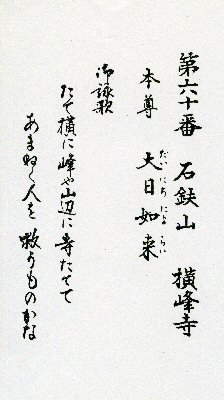 第六十番 石鈇山 横峰寺
本尊 大日如来
だいにちによらい
御詠歌
たて横に峰や山辺に寺たてて
あまねく人を救うものかな